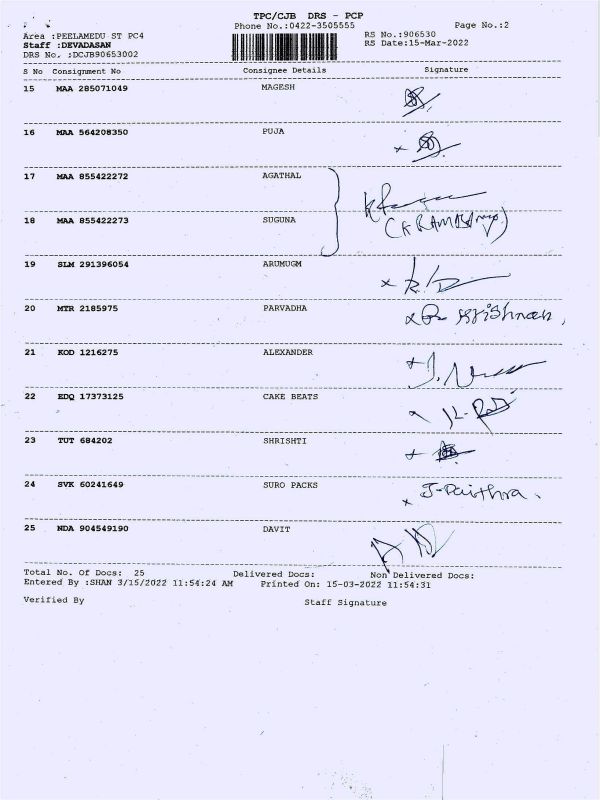 TPC/CJB DRS - PCP
Phone No.:0422-3505555 Page No.:2
Area :PEELAMEDU ST PC4 RS No.:906530
Staff :DEVADASAN RS Date:15-Mar-2022
DRS No. :DCJB90653002
S No Consignment No Consignee Details Signature
15 MAA 285071049 MAGESH
16 MAA 564208350 PUJA
17 MAA 855422272 AGATHAL
18 MAA 855422273 SUGUNA
19 SLM 291396054 ARUMUGM
20 MTR 2185975 PARVADHA Krishnan,
21 KOD 1216275 ALEXANDER
22 EDQ 17373125 CAKE BEATS
23 TUT 684202 SHRISHTI
24 SVK 60241649 SURO PACKS
25 NDA 904549190 DAVIT
Total No. Of Docs: 25 Delivered Docs: Non Delivered Docs:
Entered By :SHAN 3/15/2022 11:54:24 AM Printed On: 15-03-2022 11:54:31
Verified By Staff Signature